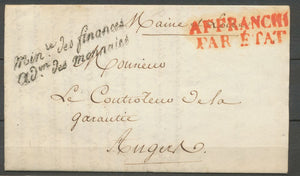 Maine
AFFRANCHI
PAR ETAT
Min.re des finances
Ad.on des monnaies
Monsieur
Le Controleur de la
garantie
Angers